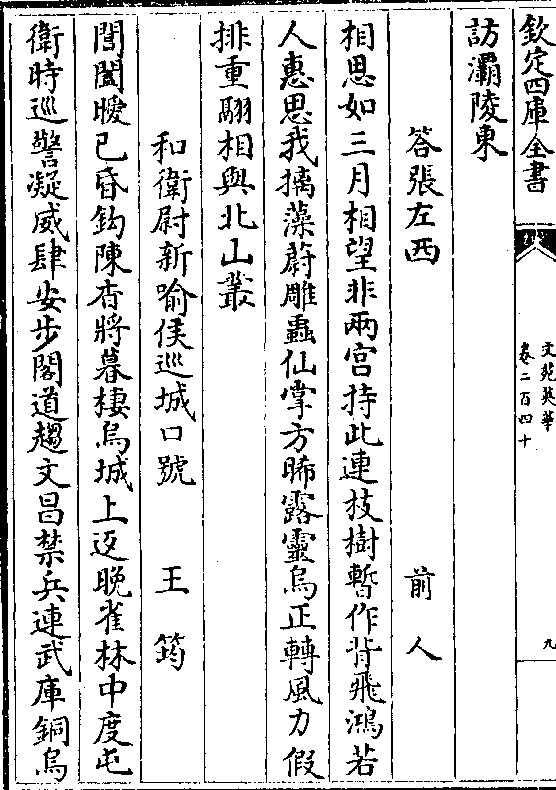 欽定四庫全書
文苑英華
卷二百四十
九
訪灞陵東
答張左西 前人
相思如三月相望非兩宫持此連枝樹暫作背飛鴻若
人惠思我摛藻蔚雕蟲仙掌方晞露靈烏正轉風力假
排重翮相與北山叢
和衛尉新喻侯巡城口號 王筠
閶闔曖已昏鈎陳杳將暮棲烏城上返晚雀林中度屯
衛時巡警凝威肆安步閣道趨文昌禁兵連武庫銅烏